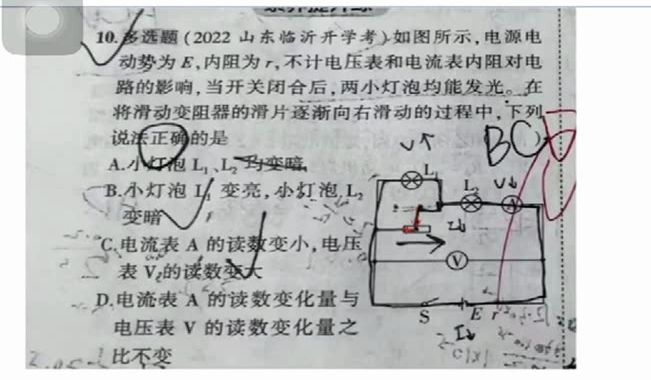 10.多选题(2022 山东临沂开学考)如图所示,电源电
动势为 E,内阻为 r,不计电压表和电流表内阻对电
路的影响,当开关闭合后,两小灯泡均能发光。在
将滑动变阻器的滑片逐渐向右滑动的过程中,下列
说法正确的是 BCD )
A.小灯泡 L₁、L₂ 均变暗
B.小灯泡 L₁ 变亮,小灯泡 L₂
变暗
C.电流表 A 的读数变小,电压
表 V 的读数变大
D.电流表 A 的读数变化量与
电压表 V 的读数变化量之
比不变
U↑
L₁
L₂
U↓
A
I↓
V
S
E r
I↓